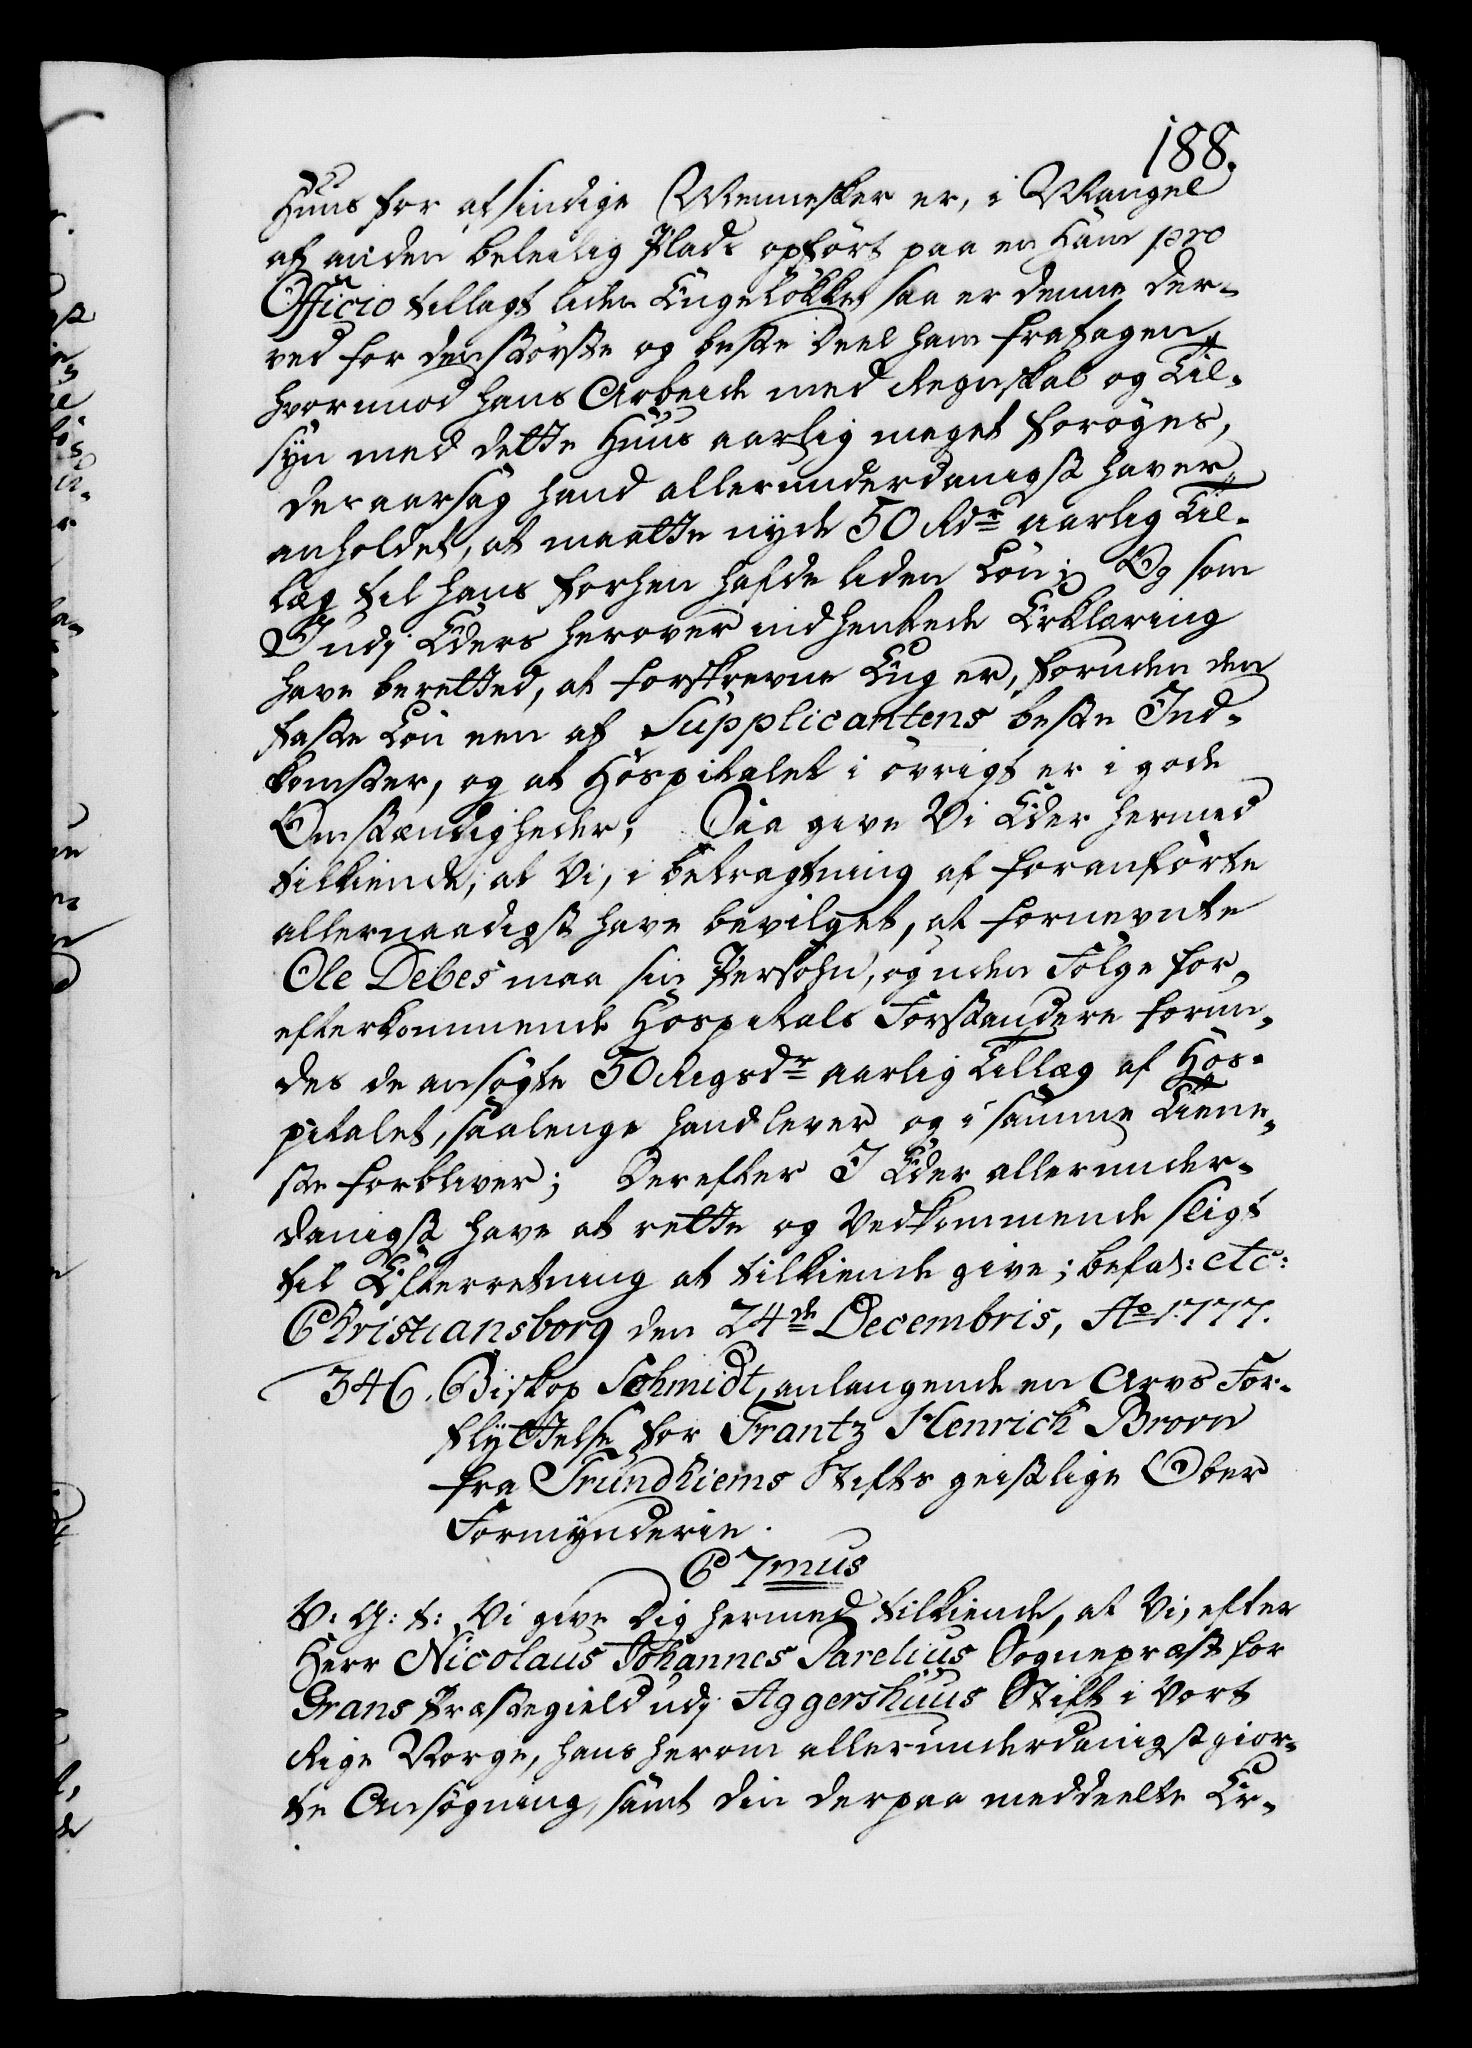 188.
Huus for afsindige Mennesker er, i Mangel
af anden beleilig Plads opført paa en ham pro
Officio tillagt liden Engeløkke, saa er denne der-
ved for den største og beste Deel ham fratagen,
hvorimod hans Arbeide med Regnskab og Til-
syn med dette Huus aarlig meget forøges,
desaarsag hand allerunderdanigst haver
anholdet, at maatte nyde 50 Rdr aarlig Til-
læg til hans forhen hafde liden Løn; Og som
I udj Eders herover indhentede Erklæring
have beretted, at forskrevne Eng er, foruden den
faste Løn een af Supplicantens beste Ind-
komster, og at Hospitalet i øvrigt er i gode
Omstændigheder; Saa give Vi Eder hermed
tilkiende, at Vi, i betragtning af foranførte
allernaadigst have bevilget, at fornevnte
Ole Debes maa sin Persohn, og uden Følge for
efterkommende Hospitals Forstandere forun-
des de ansøgte 50 Rigsdr aarlig Tillæg af Hos-
pitalet, saalenge hand lever og i samme Tiene-
ste forbliver; Derefter I Eder allerunder-
danigst have at rette og Vedkommende sligt
til Efterretning at tilkiende give; befal: etc:
Christiansborg den 24de Decembris, Ao 1777.
346. Biskop Schmidt, anlangende en Arvs For-
flyttelse for Frantz Henrich Broon
fra Trundhiems Stifts geistlige Ober
Formynderie.
C 7mus
V: G: t: Vi give Dig hermed tilkiende, at Vi, efter
Herr Nicolaus Johannes Parelius Sognepræst for
Grans Præstegield udj Aggershuus Stift i Vort
Rige Norge, hans herom allerunderdanigst gior-
te Ansøgning, samt din derpaa meddeelte Er-